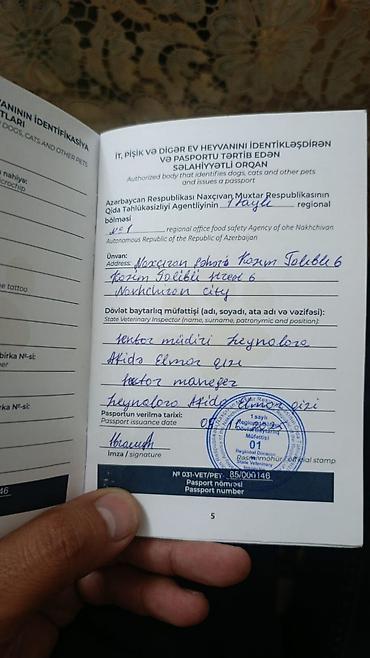 YANININ İDENTİFİKASİYA
TLARI
DOGS, CATS AND OTHER PETS
n nahiyə:
icrochip
e tattoo
birka №-si:
er
rka №-si:
46
İT, PİŞİK VƏ DİGƏR EV HEYVANINI İDENTİKLƏŞDİRƏN
VƏ PASPORTU TƏRTİB EDƏN
SƏLAHİYYƏTLİ ORQAN
Authorized body that identifies dogs, cats and other pets
and issues a passport
Azərbaycan Respublikası Naxçıvan Muxtar Respublikasının
Qida Təhlükəsizliyi Agentliyinin 1 saylı regional
bölməsi
№1 regional office food safety Agency of ohe Nakhchivan
Autonomous Republic of the Republic of Azerbaijan
Ünvan:
Address: Naxçıvan şəhəri Kazım Talıblı 6
Kazım Talıbli street 6
Nakhchivan city
Dövlət baytarlıq müfəttişi (adı, soyadı, ata adı və vəzifəsi):
State Veterinary Inspector (name, surname, patronymic and position):
sektor müdiri Zeynalova
Afidə Elmar qızı
sector maneger
Zeynalova Afidə Elmar qizi
Pasportun verilmə tarixi:
Passport issuance date
İmza / signature
Rəsmi möhür / official stamp
1 saylı
Regional Bölmə
Dövlət Baytarlıq
Müfəttişi
01
Regional Division
State Veterinary
№ 031-VET/PET 85/000146
Pasport nömrəsi
Passport number
5